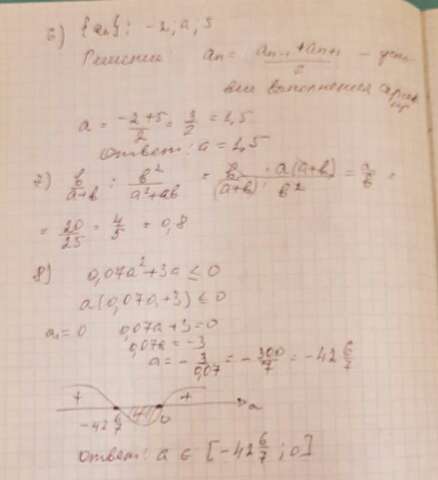 6) {an}: -2; a; 5
Решение an = (an-1 + an+1)/2 - усло-
вие выполнения
a = (-2+5)/2 = 3/2 = 1,5
Ответ: a = 1,5
7) b/(a+b) : b²/(a²+ab) = b/(a+b) · a(a+b)/b² = a/b =
= 20/25 = 4/5 = 0,8
8) 0,07a² + 3a ≤ 0
a(0,07a + 3) ≤ 0
a₁ = 0 0,07a + 3 = 0
0,07a = -3
a = - 3/0,07 = - 300/7 = -42 6/7
+ + a
-42 6/7 0
Ответ: a ∈ [-42 6/7; 0]